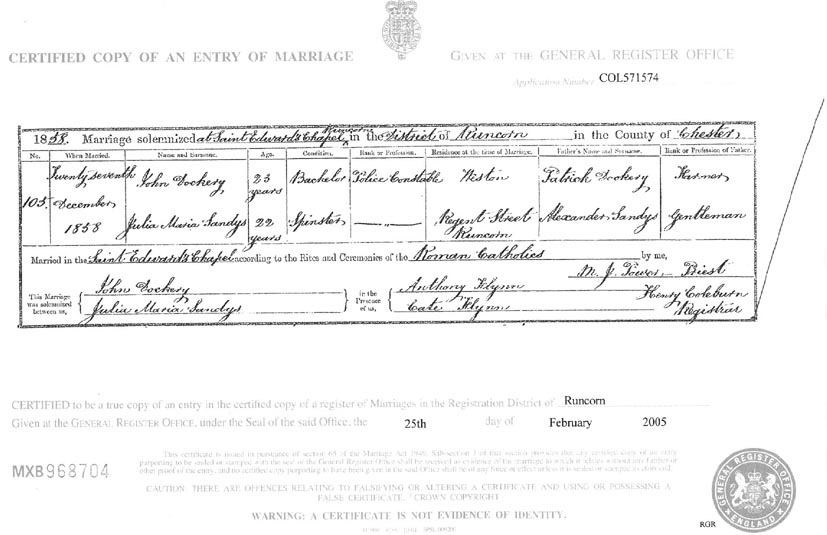 CERTIFIED COPY OF AN ENTRY OF MARRIAGE
GIVEN AT THE GENERAL REGISTER OFFICE
Application Number COL571574
1858. Marriage solemnized at Saint Edward's Chapel Runcorn in the District of Runcorn in the County of Chester
No. When Married. Name and Surname. Age. Condition. Rank or Profession. Residence at the time of Marriage. Father's Name and Surname. Rank or Profession of Father.
Twenty seventh John Dockery 23 years Bachelor Police Constable Weston Patrick Dockery Farmer
105. December
1858 Julia Maria Sandys 22 years Spinster Regent Street Runcorn Alexander Sandys Gentleman
Married in the Saint Edward's Chapel according to the Rites and Ceremonies of the Roman Catholics by me,
M. J. Priest
This Marriage was solemnized between us, John Dockery Julia Maria Sandys in the Presence of us, Anthony Flynn Cate Flynn Henry Coleburn Registrar
CERTIFIED to be a true copy of an entry in the certified copy of a register of Marriages in the Registration District of Runcorn
Given at the GENERAL REGISTER OFFICE, under the Seal of the said Office, the 25th day of February 2005
MXB968704
This certificate is issued in pursuance of section 65 of the Marriage Act 1949. Sub-section 3 of that section provides that any certified copy of an entry
purporting to be sealed or stamped with the seal of the General Register Office shall be received as evidence of the marriage to which it relates without any further or
other proof of the entry, and no certified copy purporting to have been given in the said Office shall be of any force or effect unless it is sealed or stamped as aforesaid.
CAUTION: THERE ARE OFFENCES RELATING TO FALSIFYING OR ALTERING A CERTIFICATE AND USING OR POSSESSING A
FALSE CERTIFICATE. ©CROWN COPYRIGHT
WARNING: A CERTIFICATE IS NOT EVIDENCE OF IDENTITY.
GENERAL REGISTER OFFICE
ENGLAND
RGR